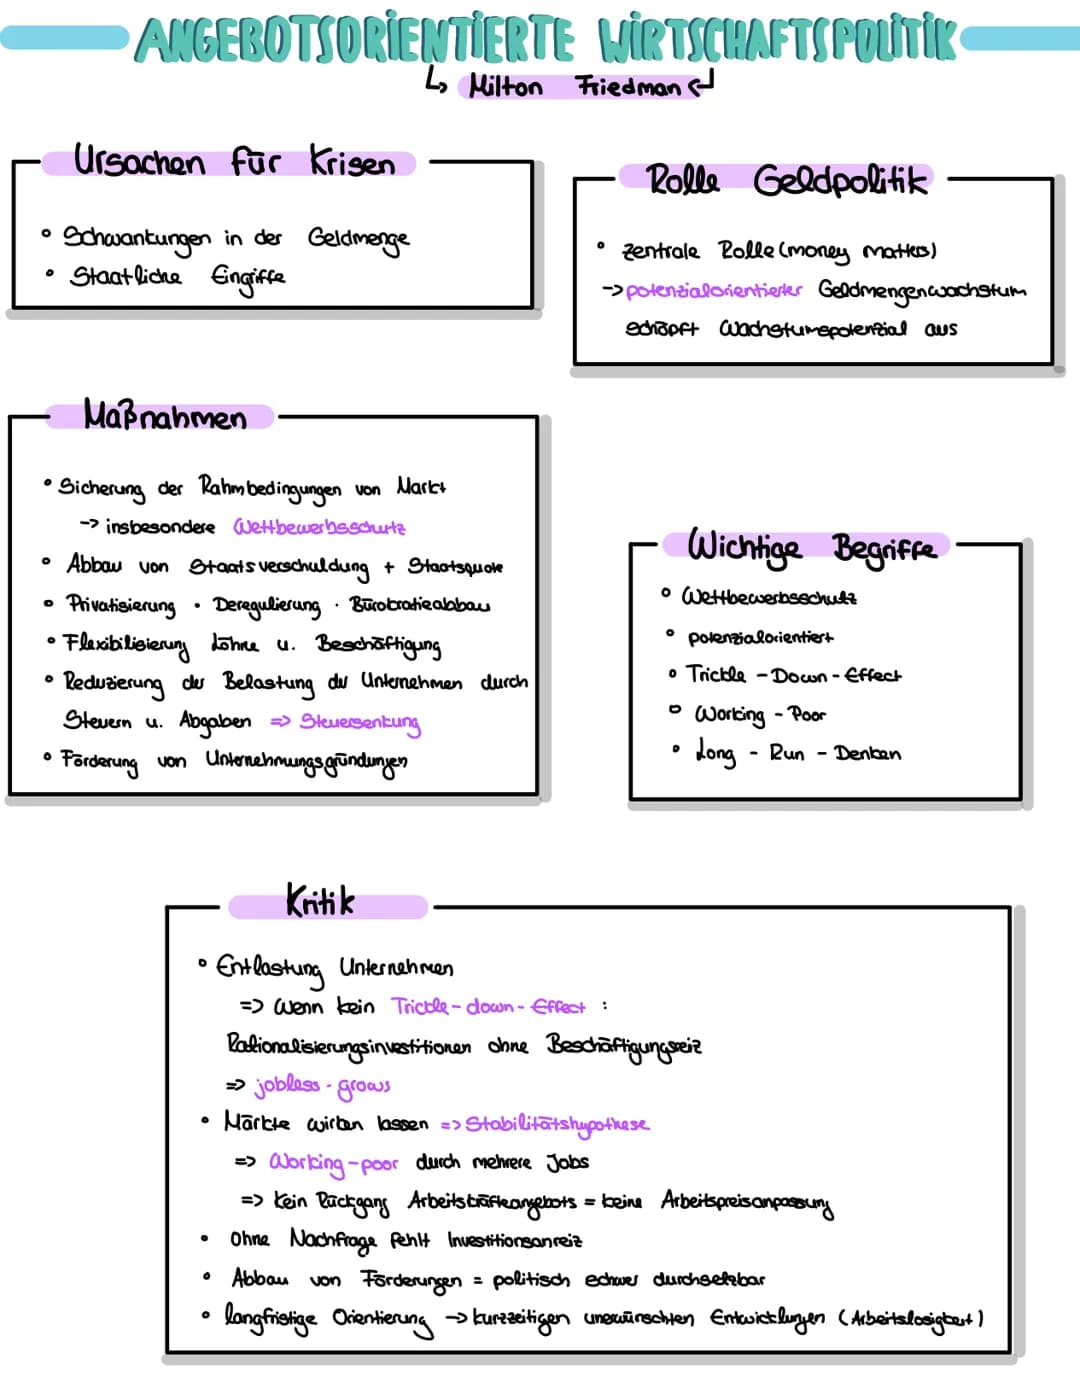 ANGEBOTSORIENTIERTE WIRTSCHAFTSPOLITIK
↳ Milton Friedman ↲
Ursachen für Krisen
• Schwankungen in der Geldmenge
• Staatliche Eingriffe
Rolle Geldpolitik
• zentrale Rolle (money matters)
-> potenzialorientierter Geldmengenwachstum
schöpft Wachstumspotenzial aus
Maßnahmen
• Sicherung der Rahmbedingungen von Markt
-> insbesondere Wettbewerbsschutz
• Abbau von Staatsverschuldung + Staatsquote
• Privatisierung · Deregulierung · Bürokratieabbau
• Flexibilisierung Löhne u. Beschäftigung
• Reduzierung der Belastung der Unternehmen durch
Steuern u. Abgaben => Steuersenkung
• Förderung von Unternehmungsgründungen
Wichtige Begriffe
• Wettbewerbsschutz
• potenzialorientiert
• Trickle - Down - Effect
• Working - Poor
• Long - Run - Denken
Kritik
• Entlastung Unternehmen
=> Wenn kein Trickle - down - Effect :
Rationalisierungsinvestitionen ohne Beschäftigungsreiz
=> jobless - grows
• Märkte wirken lassen => Stabilitätshypothese
=> Working - poor durch mehrere Jobs
=> Kein Rückgang Arbeitskräfteangebots = keine Arbeitspreisanpassung
• Ohne Nachfrage fehlt Investitionsanreiz
• Abbau von Förderungen = politisch schwer durchsetzbar
• langfristige Orientierung -> kurzzeitigen unerwünschten Entwicklungen (Arbeitslosigkeit)